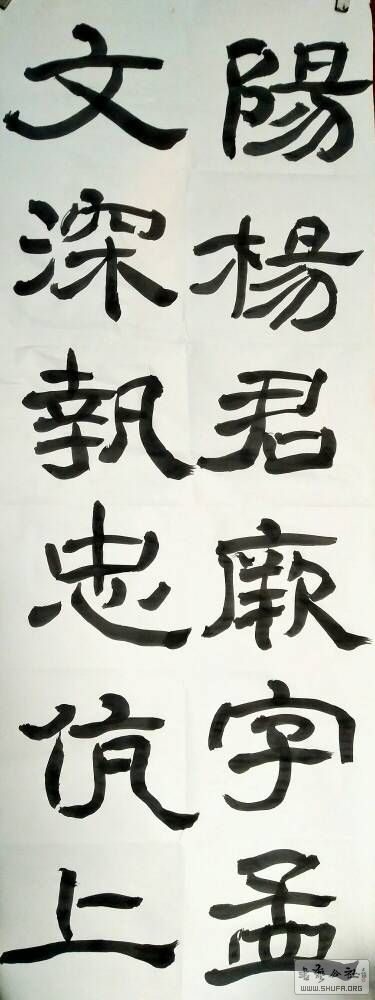 陽楊君厥字孟
文深執忠伉上
WWW.SHUFA.ORG